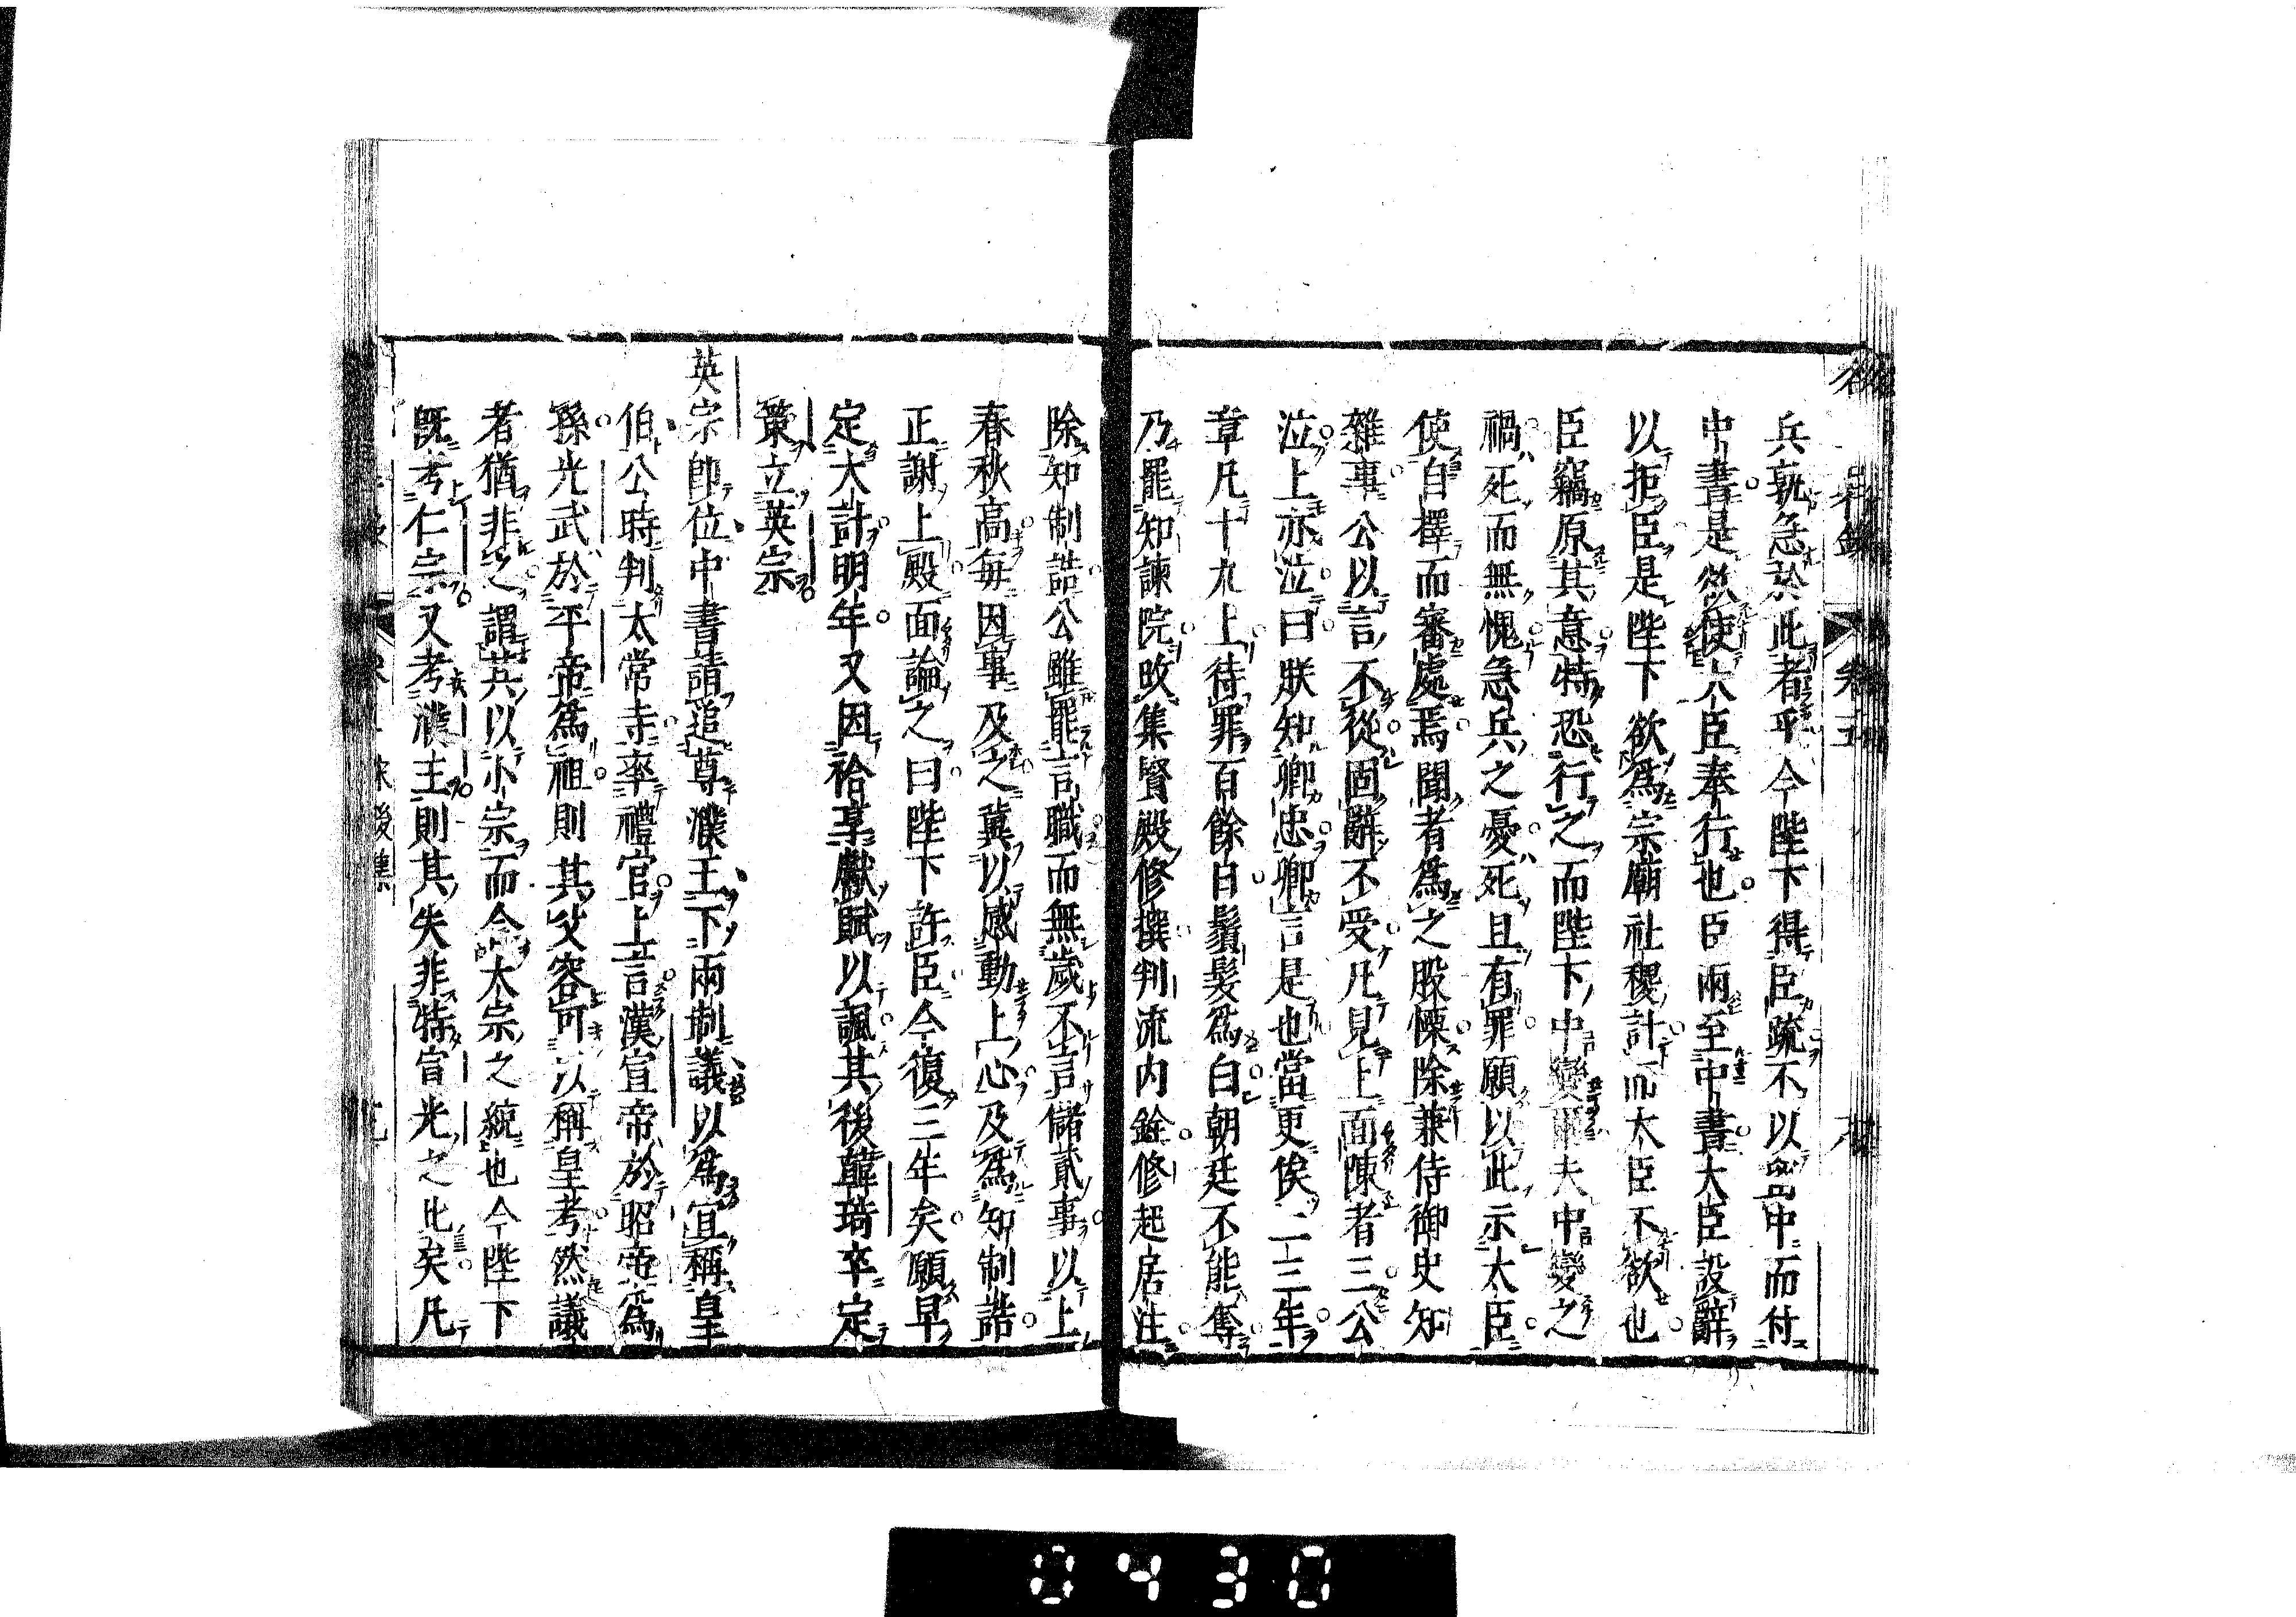 兵孰急於此者乎今陛下得臣疏不以留中而付
中書是欲使大臣奉行也臣兩至中書大臣設辭
以拒臣是陛下欲爲宗廟社稷計而大臣不欲也
臣竊原其意特恐行之而陛下中變爾夫中變之
禍死而無愧急兵之憂死且有罪願以此示太臣
使自擇而審處焉聞者爲之股慄除兼侍御史知
雜事公以言不從固辭不受凡見上面陳者三公
泣上亦泣曰朕知卿忠卿言是也當更俟二三年
章凡十九上待罪百餘日鬚髮爲白朝廷不能奪
乃罷知諫院改集賢殿修撰判流内銓修起居注
除知制誥公雖罷言職而無歲不言儲貳事以上
春秋高每因事及之冀以感動上心及爲知制誥
正謝上殿面論之曰陛下許臣今復三年矣願早
定大計明年又因祫享獻賦以諷其後韓琦卒定
策立英宗
英宗卽位中書請追尊濮王下兩制議以爲宜稱皇
伯公時判太常寺率禮官上言漢宣帝於昭帝爲
孫光武於平帝爲祖則其父容可以稱皇考然議
者猶非之謂其以小宗而合大宗之統也今陛下
旣考仁宗又考濮王則其失非特宣光之比矣凡
卷五
0430